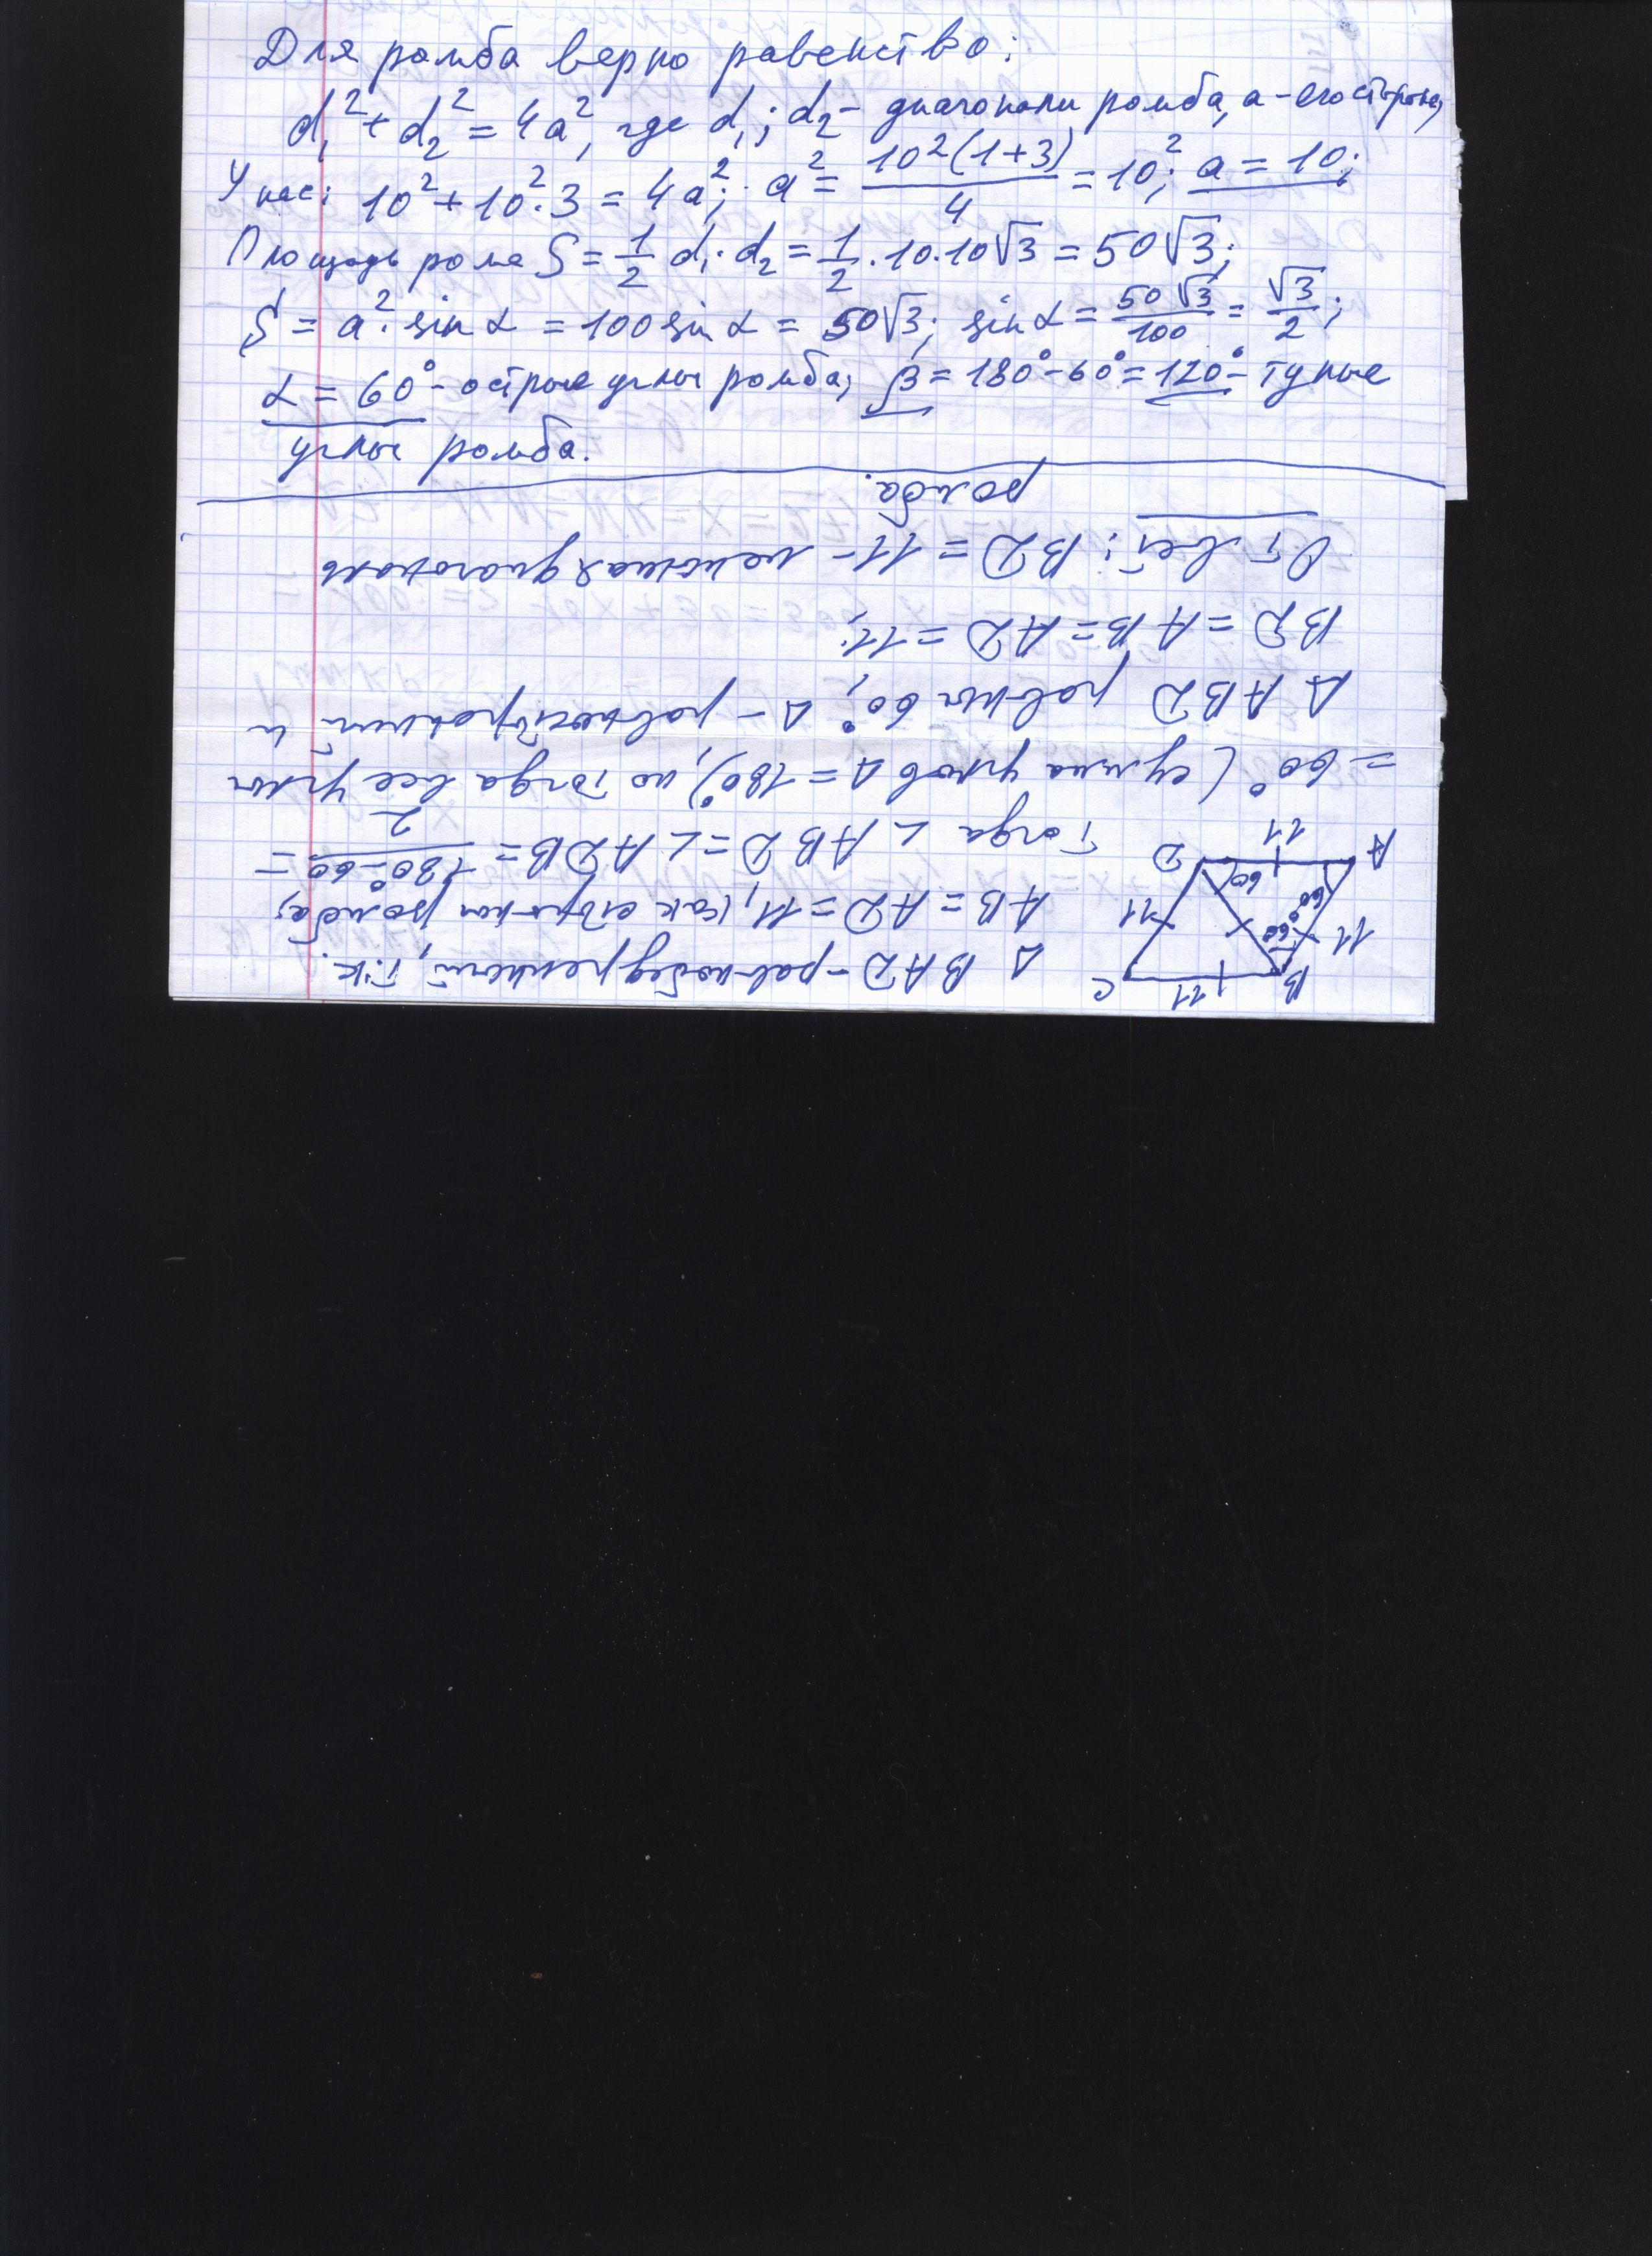 Для ромба верно равенство:
d₁² + d₂² = 4a², где d₁; d₂ - диагонали ромба, a - его сторона,
У нас: 10² + 10²·3 = 4a²; a² = 10²(1+3)/4 = 10²; a = 10;
Площадь рома S = 1/2 d₁·d₂ = 1/2·10·10√3 = 50√3;
S = a²·sin α = 100 sin α = 50√3; sin α = 50√3/100 = √3/2;
α = 60° - острые углы ромба; β = 180° - 60° = 120° - тупые
углы ромба.
B 11 C
11 60° 11
60° 60°
A 11 D
Δ BAD - равнобедренный, т.к.
AB = AD = 11, как стороны ромба;
Тогда ∠ABD = ∠ADB = 180° - 60°/2 =
= 60° (сумма углов Δ = 180°), но тогда все углы
Δ ABD равны 60°, Δ - равносторонний и
BD = AB = AD = 11;
Ответ: BD = 11 - меньшая диагональ
ромба.